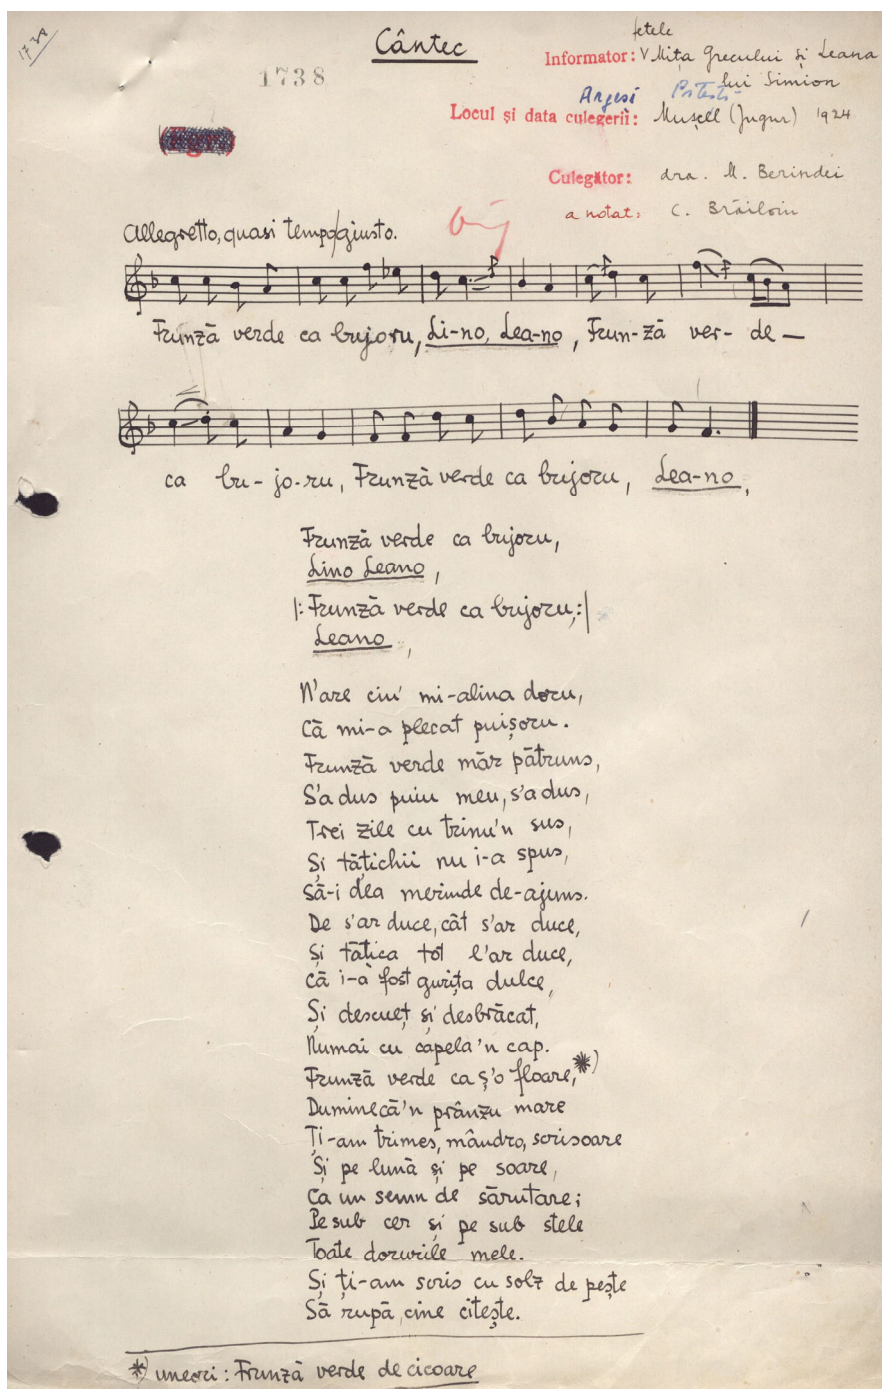 1738
Cântec
1738
fetele
Informator: V Mița Grecului și Leana
lui Simion
Argeș Pitești
Locul și data culegerii: Mușcel (Jugur) 1924
Culegător: dra. M. Berindei
a notat: C. Brăiloiu
Allegretto, quasi tempo giusto.
Frunză verde ca bujoru, Li-no, Lea-no, Frun-ză ver-de—
ca bu-jo-ru, Frunză verde ca bujoru, Lea-no,
Frunză verde ca bujoru,
Lino Leano,
|: Frunză verde ca bujoru, :|
Leano,
N'are cin' mi-alina doru,
Că mi-a plecat puișoru.
Frunză verde măr pătruns,
S'a dus puiu meu, s'a dus,
Trei zile cu trinu'n sus,
Și tătichii nu i-a spus,
Să-i dea merinde de-ajuns.
De s'ar duce, cât s'ar duce,
Și tătica tot l'ar duce,
Că i-a fost gurița dulce,
Și descueț și desbrăcat,
Numai cu capela'n cap.
Frunză verde ca ș'o floare, *)
Duminecă'n prânzu mare
Ți-am trimes, mândro, scrisoare
Și pe lună și pe soare,
Ca un semn de sărutare;
Pe sub cer și pe sub stele
Toate dorurile mele.
Și ți-am scris cu solz de pește
Să rupă cine citește.
*) uneori: Frunză verde de cicoare